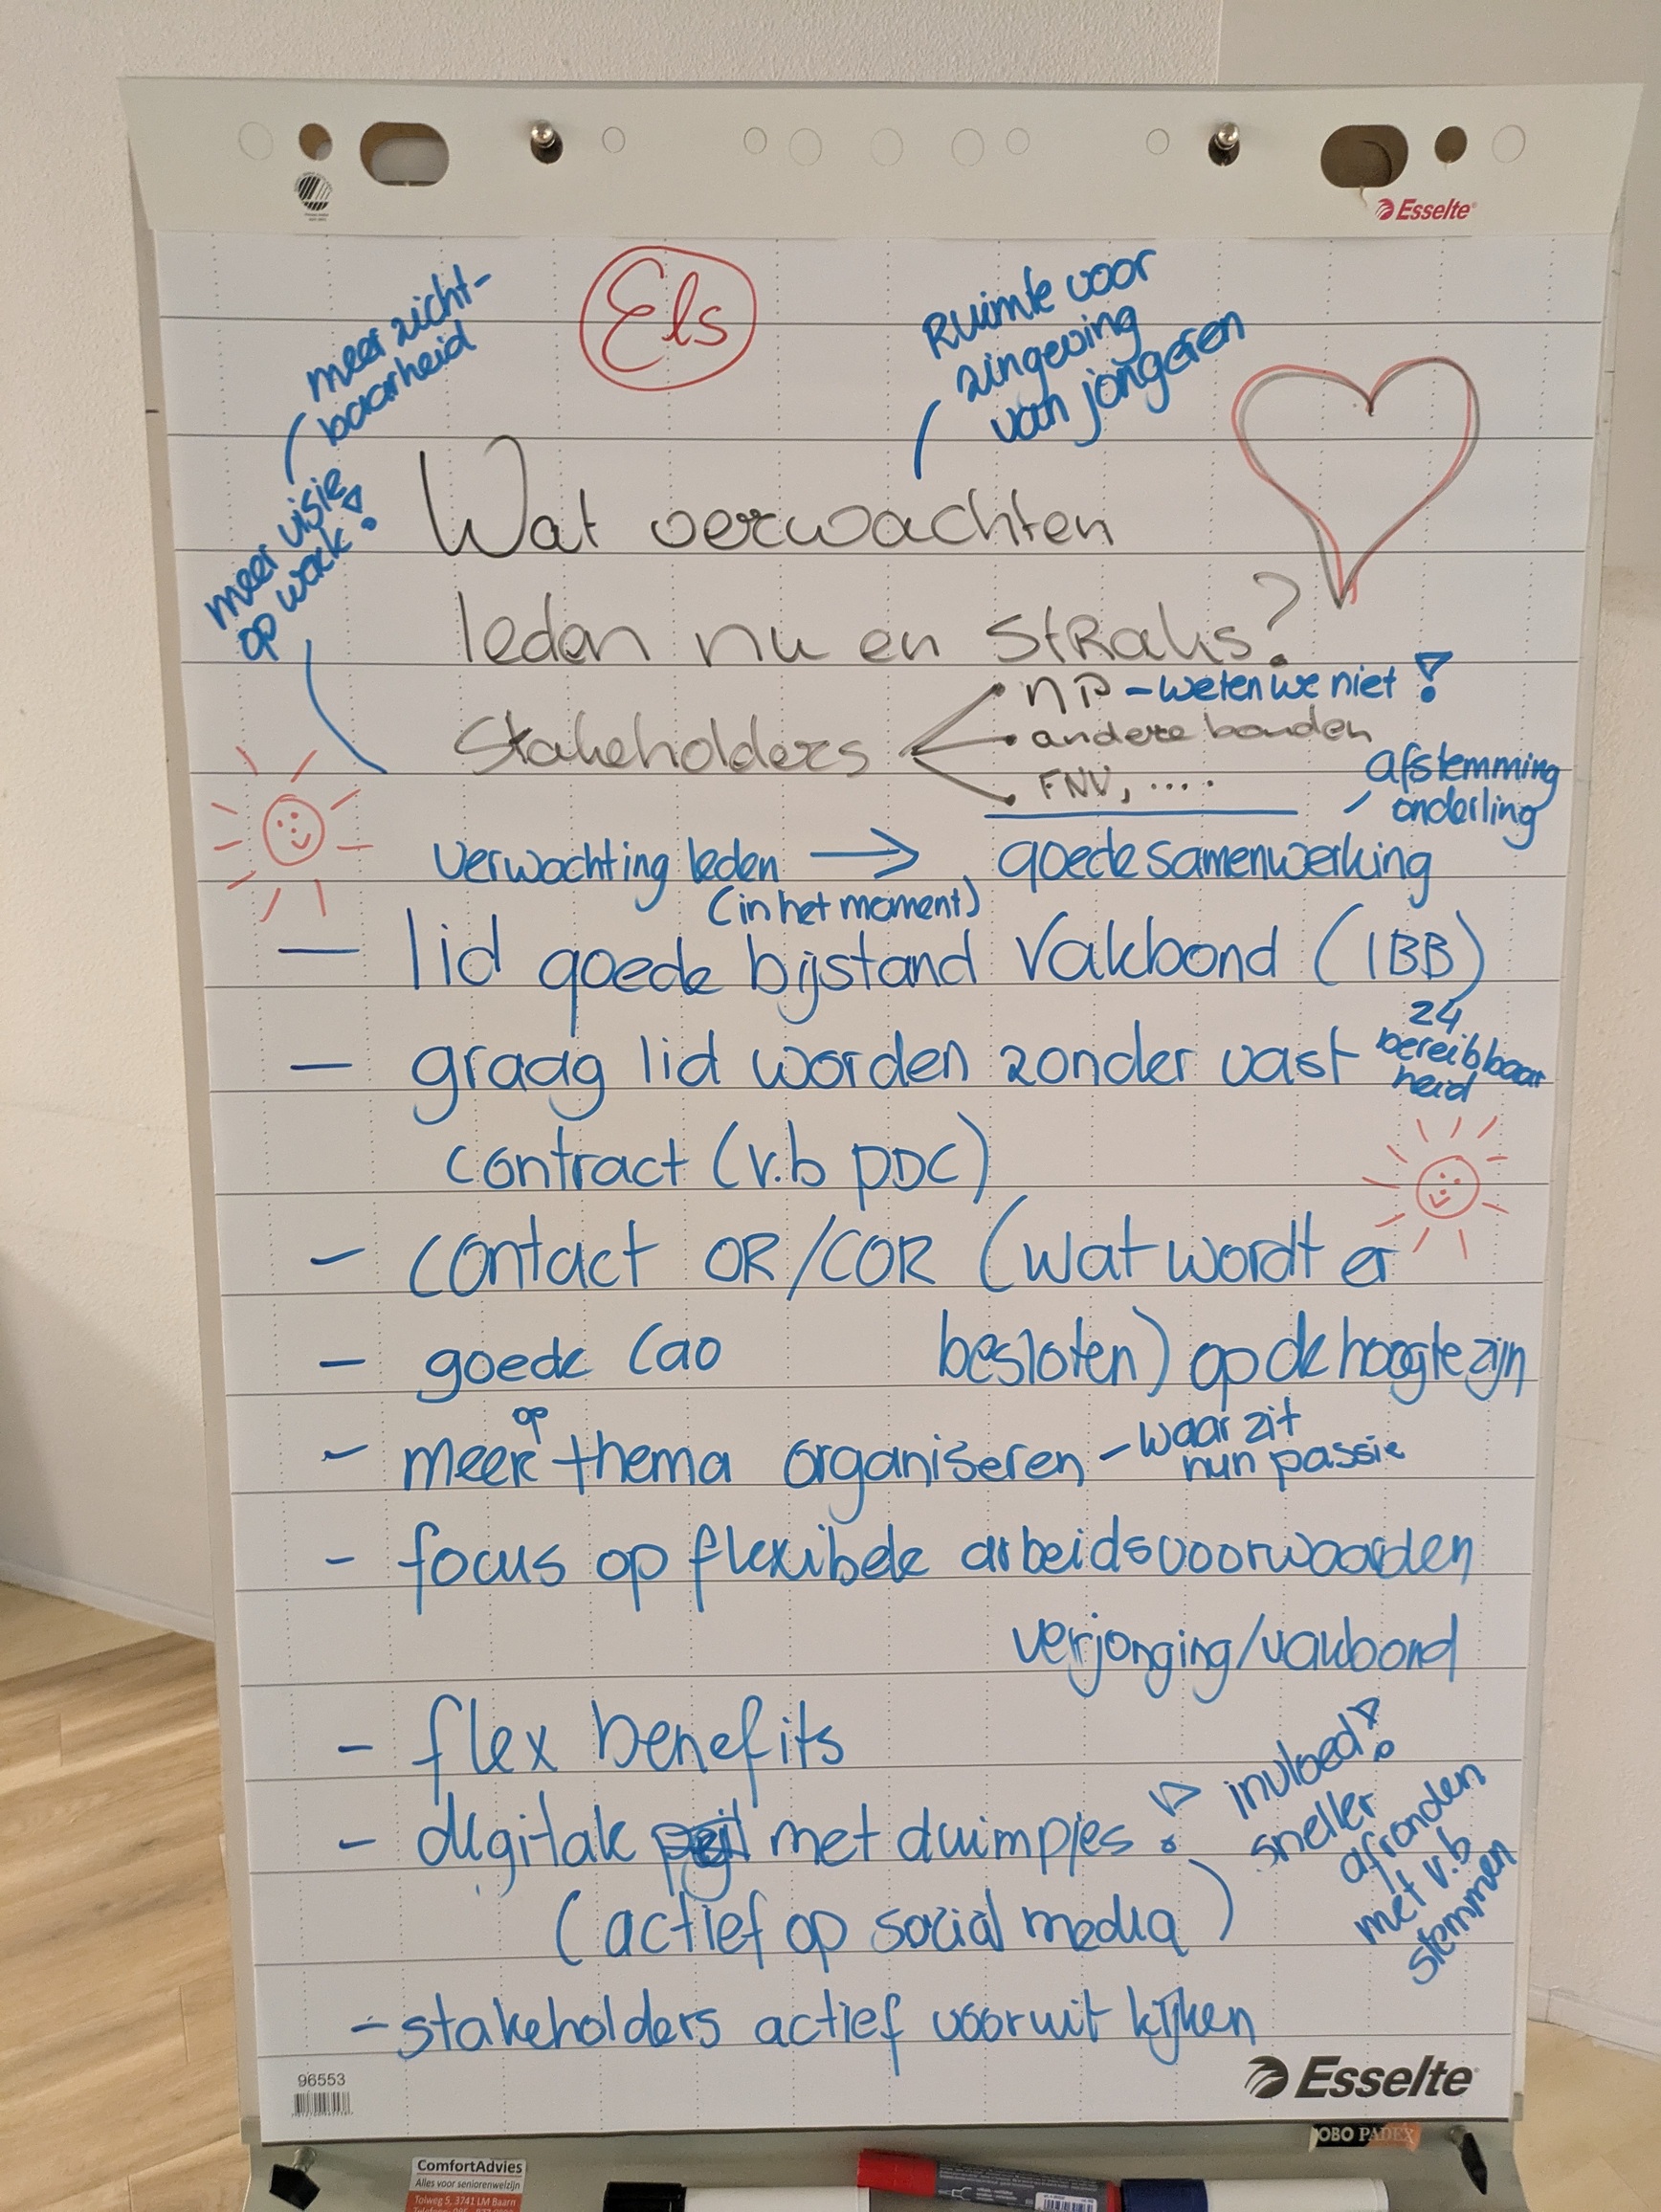 Esselte
Els
meer zicht-
baarheid
Ruimte voor
zingeving
van jongeren
meer visie
op werk!
Wat verwachten
leden nu en straks?
Stakeholders
np - weten we niet!
andere bonden
FNV, ....
afstemming
onderling
verwachting leden → goede samenwerking
(in het moment)
- lid goede bijstand Vakbond (IBB)
24
bereikbaar
heid
- graag lid worden zonder vast
contract (v.b PDC)
- contact OR/COR (wat wordt er
besloten) op de hoogte zijn
- goede Cao
- meer op thema organiseren - waar zit
hun passie
- focus op flexibele arbeidsvoorwaarden
verjonging/vakbond
- flex benefits
- digitale met duimpjes!
(actief op social media)
invloed!
sneller
afronden
met v.b
stemmen
- stakeholders actief vooruit kijken
96553
Esselte
OBO PADEX
ComfortAdvies
Alles voor seniorenwelzijn
Tolweg 5, 3741 LM Baarn